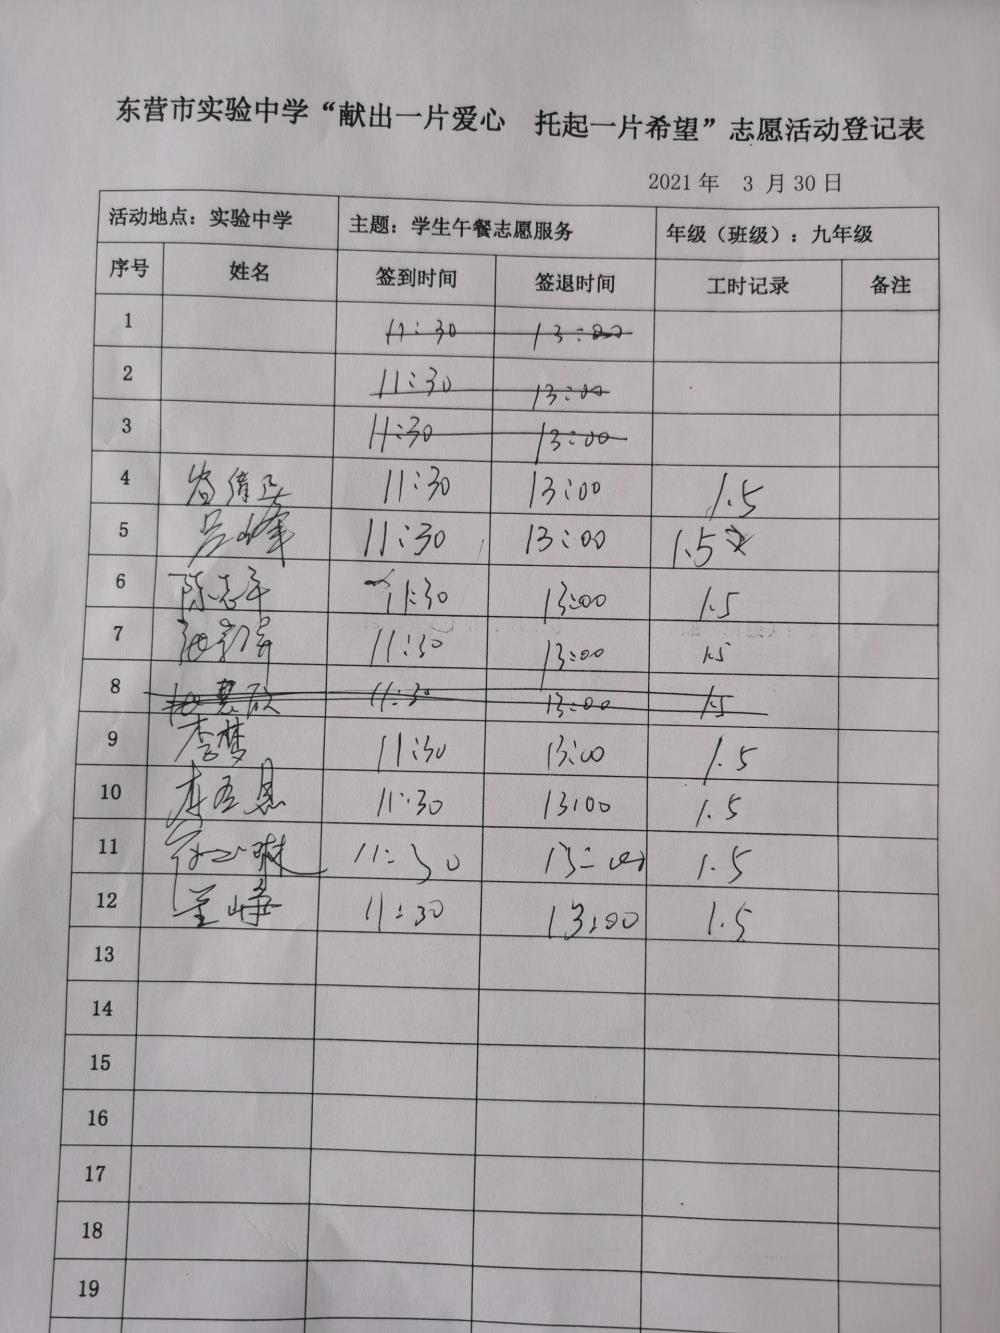 东营市实验中学“献出一片爱心 托起一片希望”志愿活动登记表
2021 年 3 月 30 日
活动地点：实验中学 主题：学生午餐志愿服务 年级（班级）：九年级
序号 姓名 签到时间 签退时间 工时记录 备注
1 11:30 13:00
2 11:30 13:00
3 11:30 13:00
4 11:30 13:00 1.5
5 吕峰 11:30 13:00 1.5
6 陈志军 11:30 13:00 1.5
7 11:30 13:00 1.5
8 11:30 13:00 1.5
9 李梦 11:30 13:00 1.5
10 11:30 13:00 1.5
11 11:30 13:00 1.5
12 11:30 13:00 1.5
13
14
15
16
17
18
19